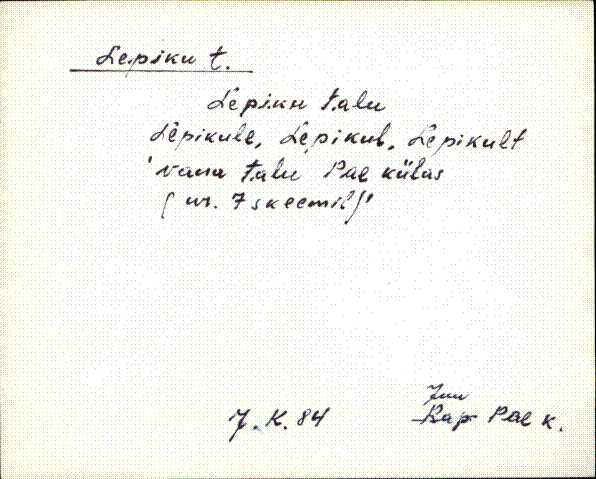 Lepiku t.
Lepiku talu
Lepikule, Lepikul, Lepikult
'vana talu Pae külas
(nr. 7 skeemil)'
Juu
J. K. 84 Rap Pae k.